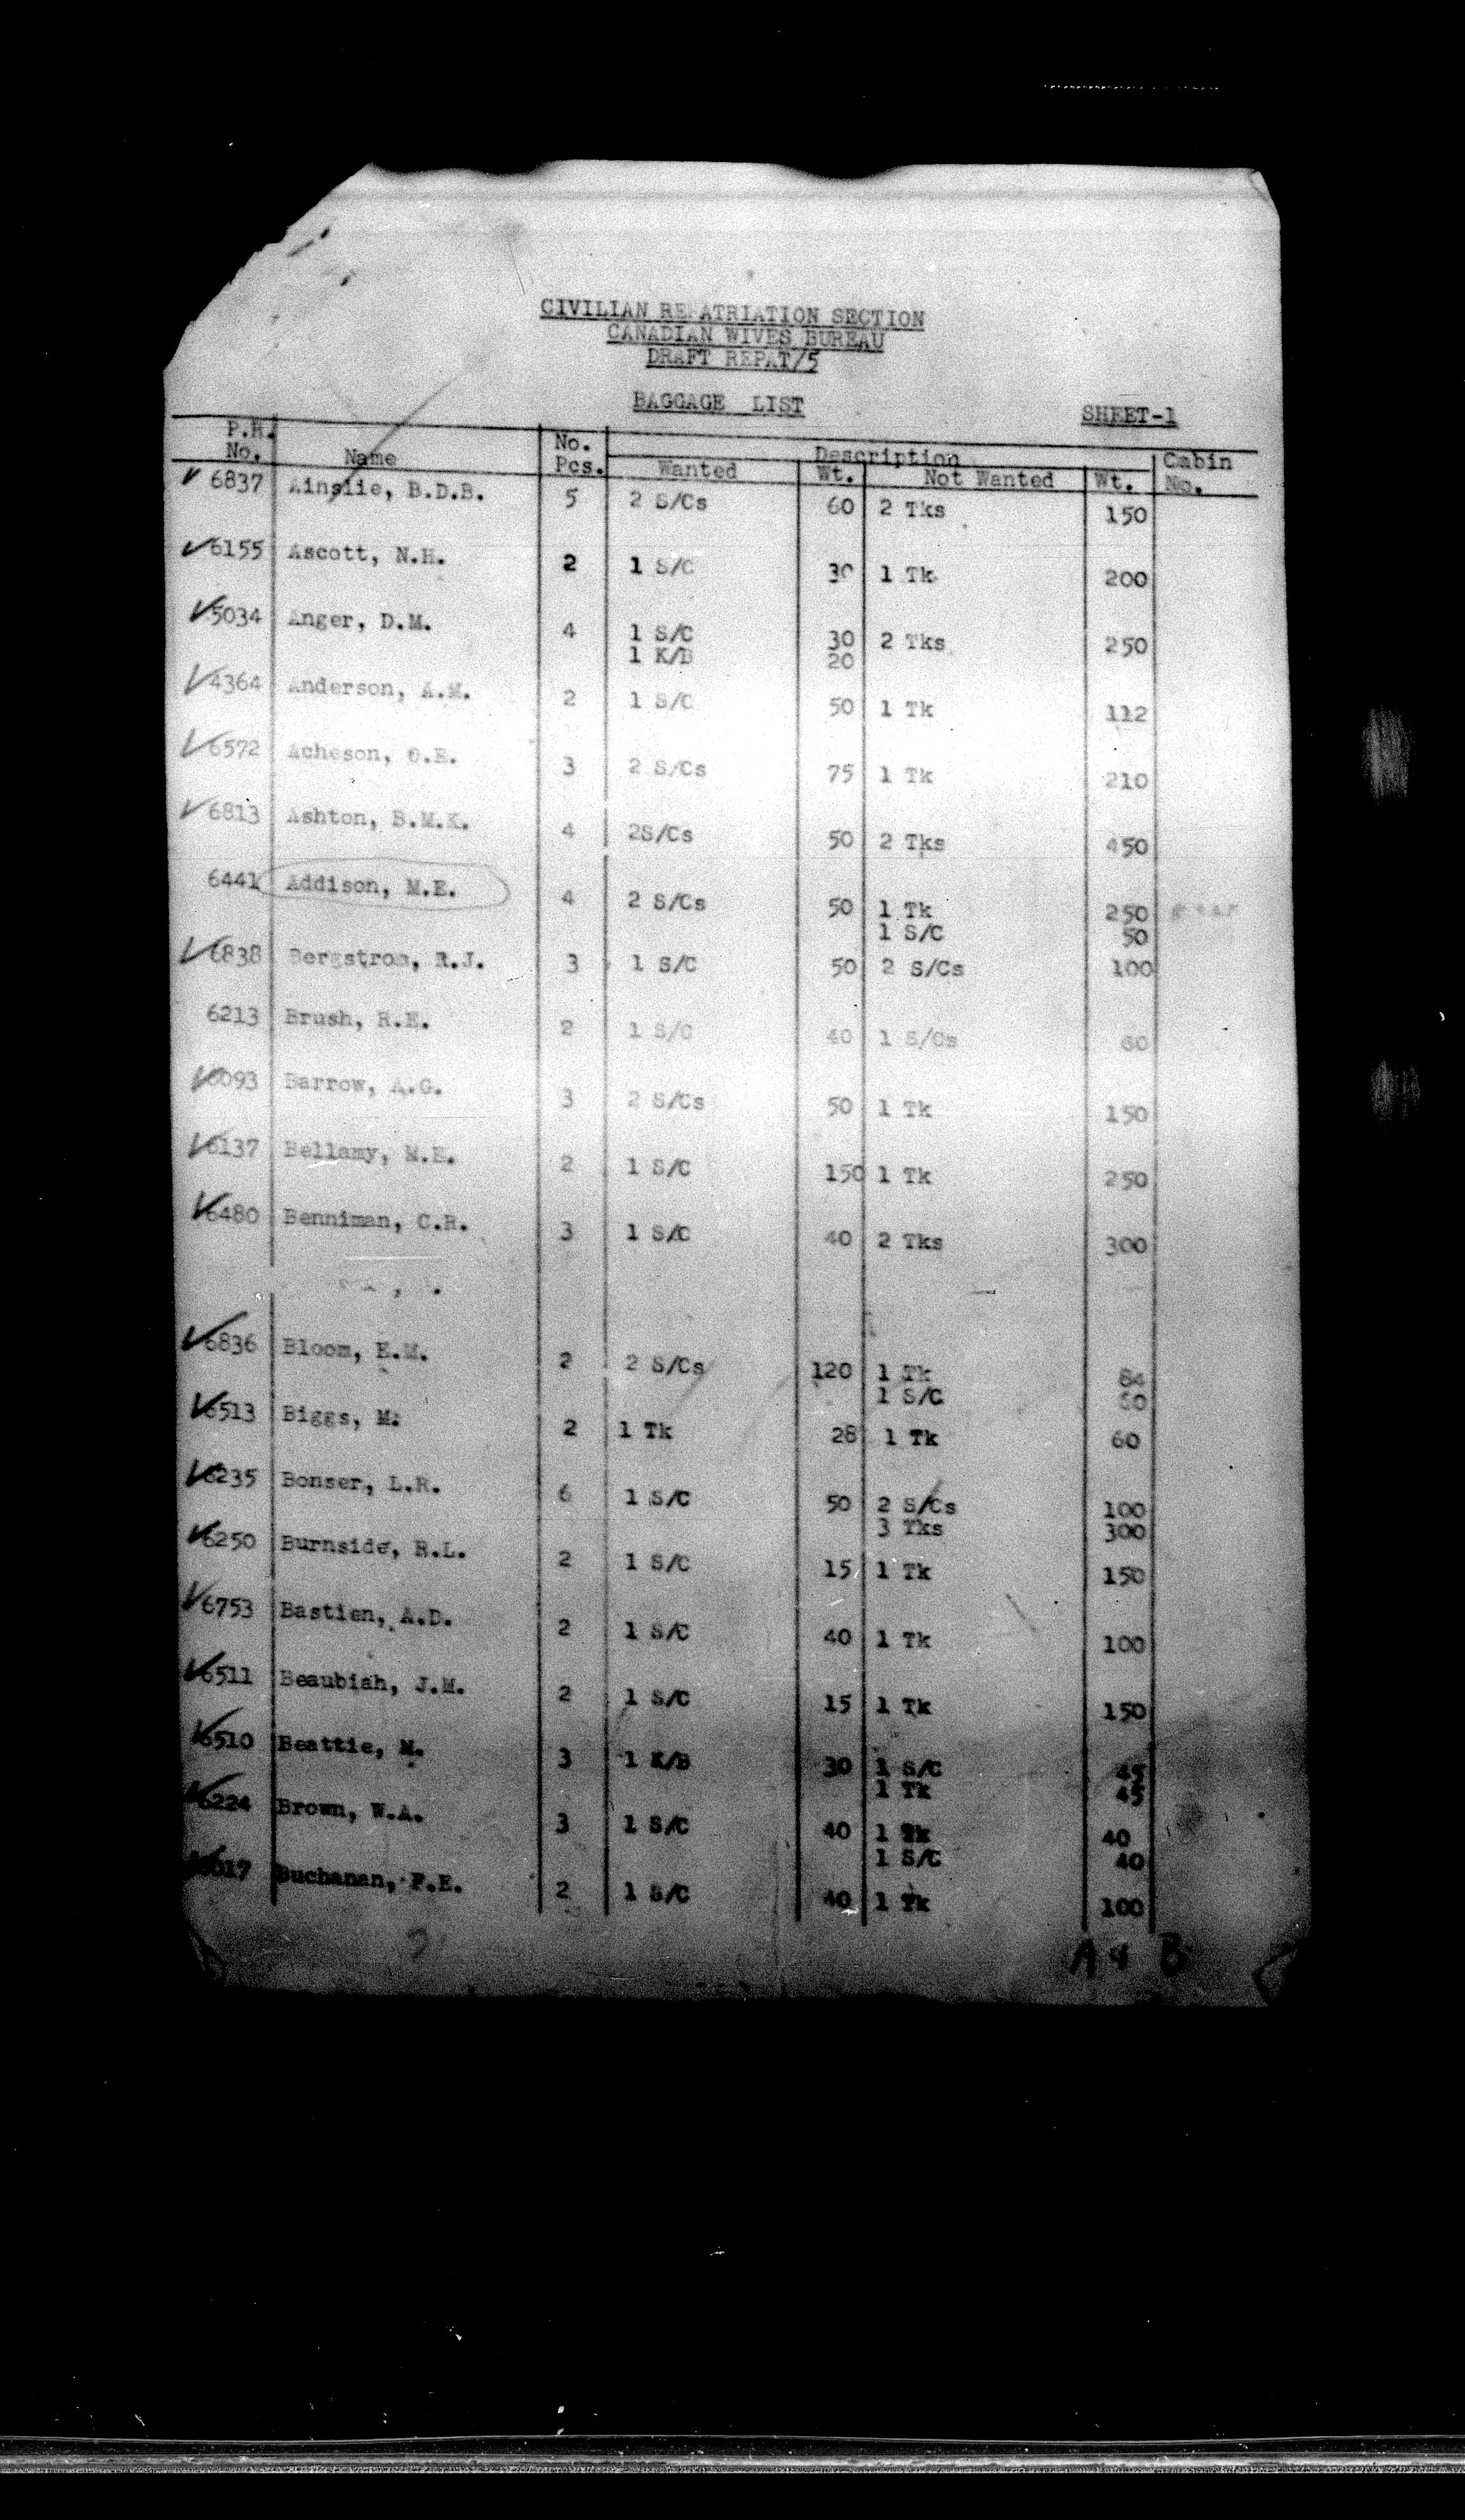 CIVILIAN REPATRIATION SECTION
CANADIAN WIVES BUREAU
DRAFT REPAT/5
BAGGAGE LIST SHEET-1
P.H. No. Name No. Pcs. Description Wanted Wt. Not Wanted Wt. Cabin No.
6837 Ainslie, B.D.B. 5 2 S/Cs 60 2 Tks 150
6155 Ascott, N.H. 2 1 S/C 30 1 Tk 200
5034 Anger, D.M. 4 1 S/C 30 2 Tks 250
1 K/B 20
4364 Anderson, A.M. 2 1 S/C 50 1 Tk 112
6572 Acheson, 3 2 S/Cs 75 1 Tk 210
6813 Ashton, B.M.K. 4 2S/Cs 50 2 Tks 450
6441 Addison, M.E. 4 2 S/Cs 50 1 Tk 250
1 S/C 50
6838 Bergstrom, R.J. 3 1 S/C 50 2 S/Cs 100
6213 Brush, R.E. 2 1 S/C 40 1 S/Cs 60
6093 Barrow, A.G. 3 2 S/Cs 50 1 Tk 150
6137 Bellamy, M.E. 2 1 S/C 150 1 Tk 250
6480 Benniman, C.R. 3 1 S/C 40 2 Tks 300
6836 Bloom, E.M. 2 2 S/Cs 120 1 Tk 84
1 S/C 60
6513 Biggs, M. 2 1 Tk 28 1 Tk 60
6235 Bonser, L.R. 6 1 S/C 50 2 S/Cs 100
3 Tks 300
6250 Burnside, R.L. 2 1 S/C 15 1 Tk 150
6753 Bastien, A.D. 2 1 S/C 40 1 Tk 100
6511 Beaubiah, J.M. 2 1 S/C 15 1 Tk 150
6510 Beattie, M. 3 1 K/B 30 1 S/C 45
1 Tk 45
6224 Brown, W.A. 3 1 S/C 40 1 Tk 40
1 S/C 40
6017 Buchanan, F.E. 2 1 S/C 40 1 Tk 100
A & B